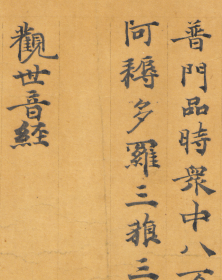 普門品時衆中八
阿耨多羅三藐三
觀世音經